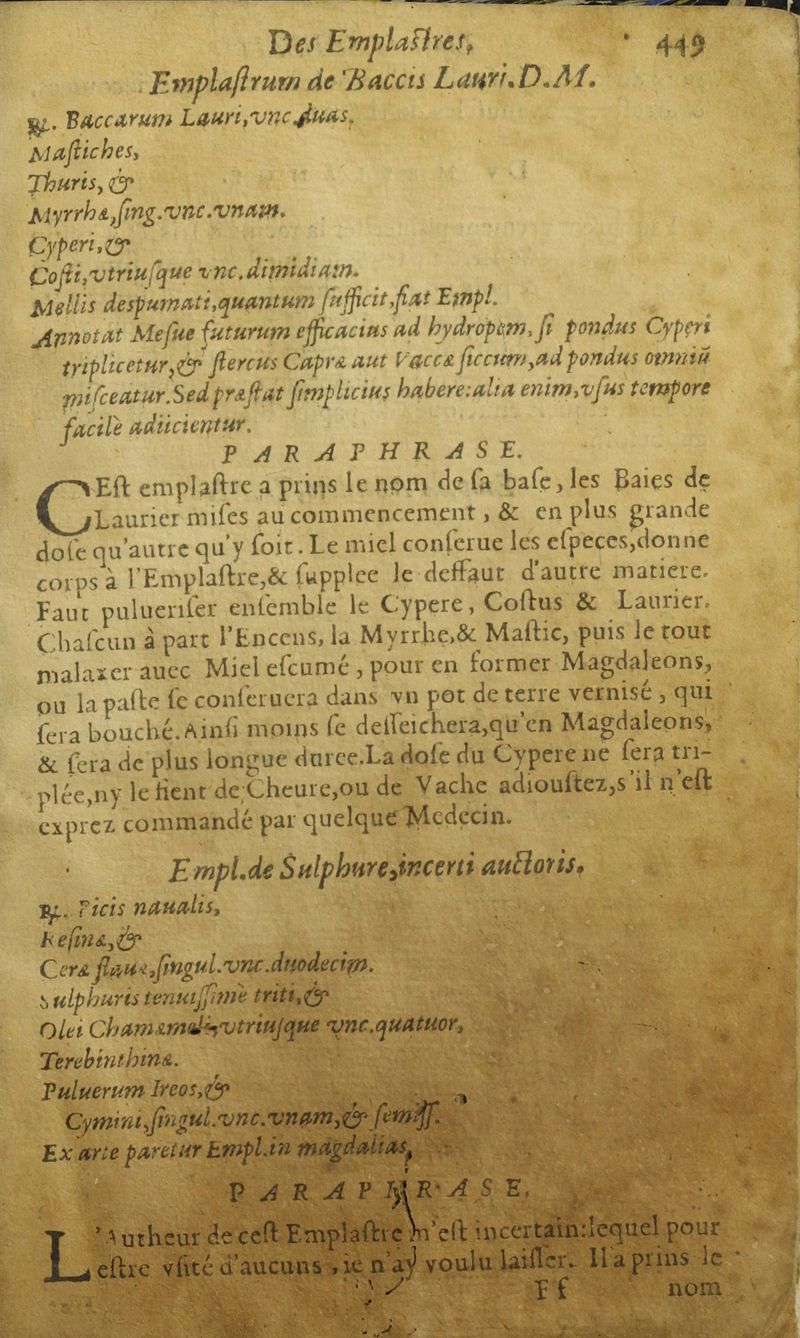 Des Emplaſtres, 449
Emplaſtrum de Baccis Lauri.D.M.
℞. Baccarum Lauri,vnc.duas.
Maſtiches,
Thuris, &
Myrrhæ,ſing.vnc.vnam.
Cyperi,&
Coſti,vtriuſque vnc.dimidiam.
Mellis deſpumati,quantum ſufficit,fiat Empl.
Annotat Meſue futurum efficacius ad hydropem,ſi pondus Cyperi
triplicetur,& ſtercus Capræ aut Vaccæ ſiccum,ad pondus omniũ
miſceatur.Sed præſtat ſimplicius habere:alia enim,vſus tempore
facilè adiicientur.
PARAPHRASE.
CEſt emplaſtre a prins le nom de ſa baſe, les Baies de
Laurier miſes au commencement, & en plus grande
doſe qu'autre qu'y ſoit. Le miel conſerue les eſpeces,donne
corps à l'Emplaſtre,& ſupplee le deffaut d'autre matiere.
Faut puluerifer enſemble le Cypere, Coſtus & Laurier.
Chaſcun à part l'Encens, la Myrrhe,& Maſtic, puis le tout
malaxer auec Miel eſcumé, pour en former Magdaleons,
ou la paſte ſe conſeruera dans vn pot de terre verniſé, qui
ſera bouché.Ainſi moins ſe deſſeichera,qu'en Magdaleons,
& ſera de plus longue duree.La doſe du Cypere ne ſera tri-
plée,ny le fient de Cheure,ou de Vache adiouſtez,s'il n'eſt
exprez commandé par quelque Medecin.
Empl.de Sulphure,incerti auctoris.
℞. Picis naualis,
Reſinæ,&
Ceræ flauæ,ſingul.vnc.duodecim.
Sulphuris tenuiſſimè triti,&
Olei Chamæmeli,vtriuſque vnc.quatuor,
Terebinthinæ.
Puluerum Ireos,&
Cymini,ſingul.vnc.vnam,& ſemiſſ.
Ex arte paretur Empl.in magdalias,
PARAPHRASE.
L'Autheur de ceſt Emplaſtre m'eſt incertain:lequel pour
eſtre vſité d'aucuns, ie n'ay voulu laiſſer. Il a prins le
Ff nom